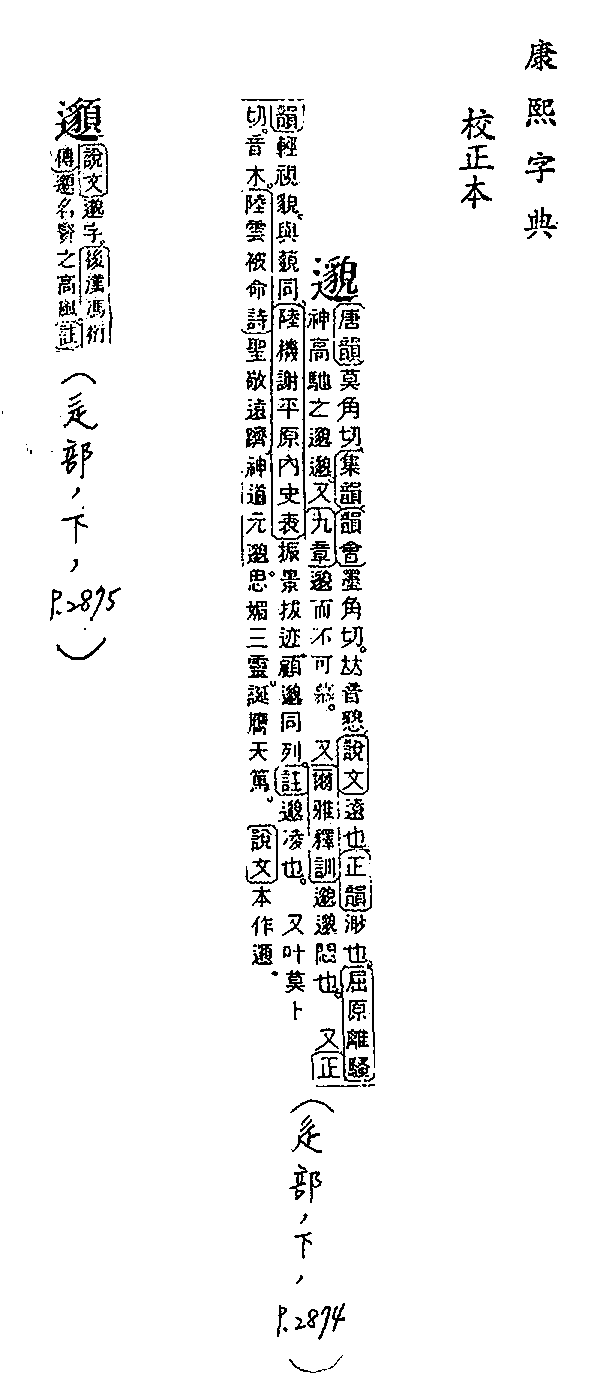 康熙字典
校正本
邈唐韻莫角切集韻韻會墨角切𠀤音㦝說文遠也正韻渺也屈原離騷
神高馳之邈邈又九章邈而不可慕。又爾雅釋訓邈邈悶也。又正
韻輕視貌與藐同陸機謝平原內史表振景拔迹顧邈同列。註邈凌也。又叶莫卜
切。音木。陸雲被命詩聖敬遠躋神道元邈思媚三靈。誕膺天篤。說文本作𨘷。
(辵部,下,P.2874)
𨘷說文邈字。後漢馮衍
傳𨘷名賢之高風註
(辵部,下,P.2875)